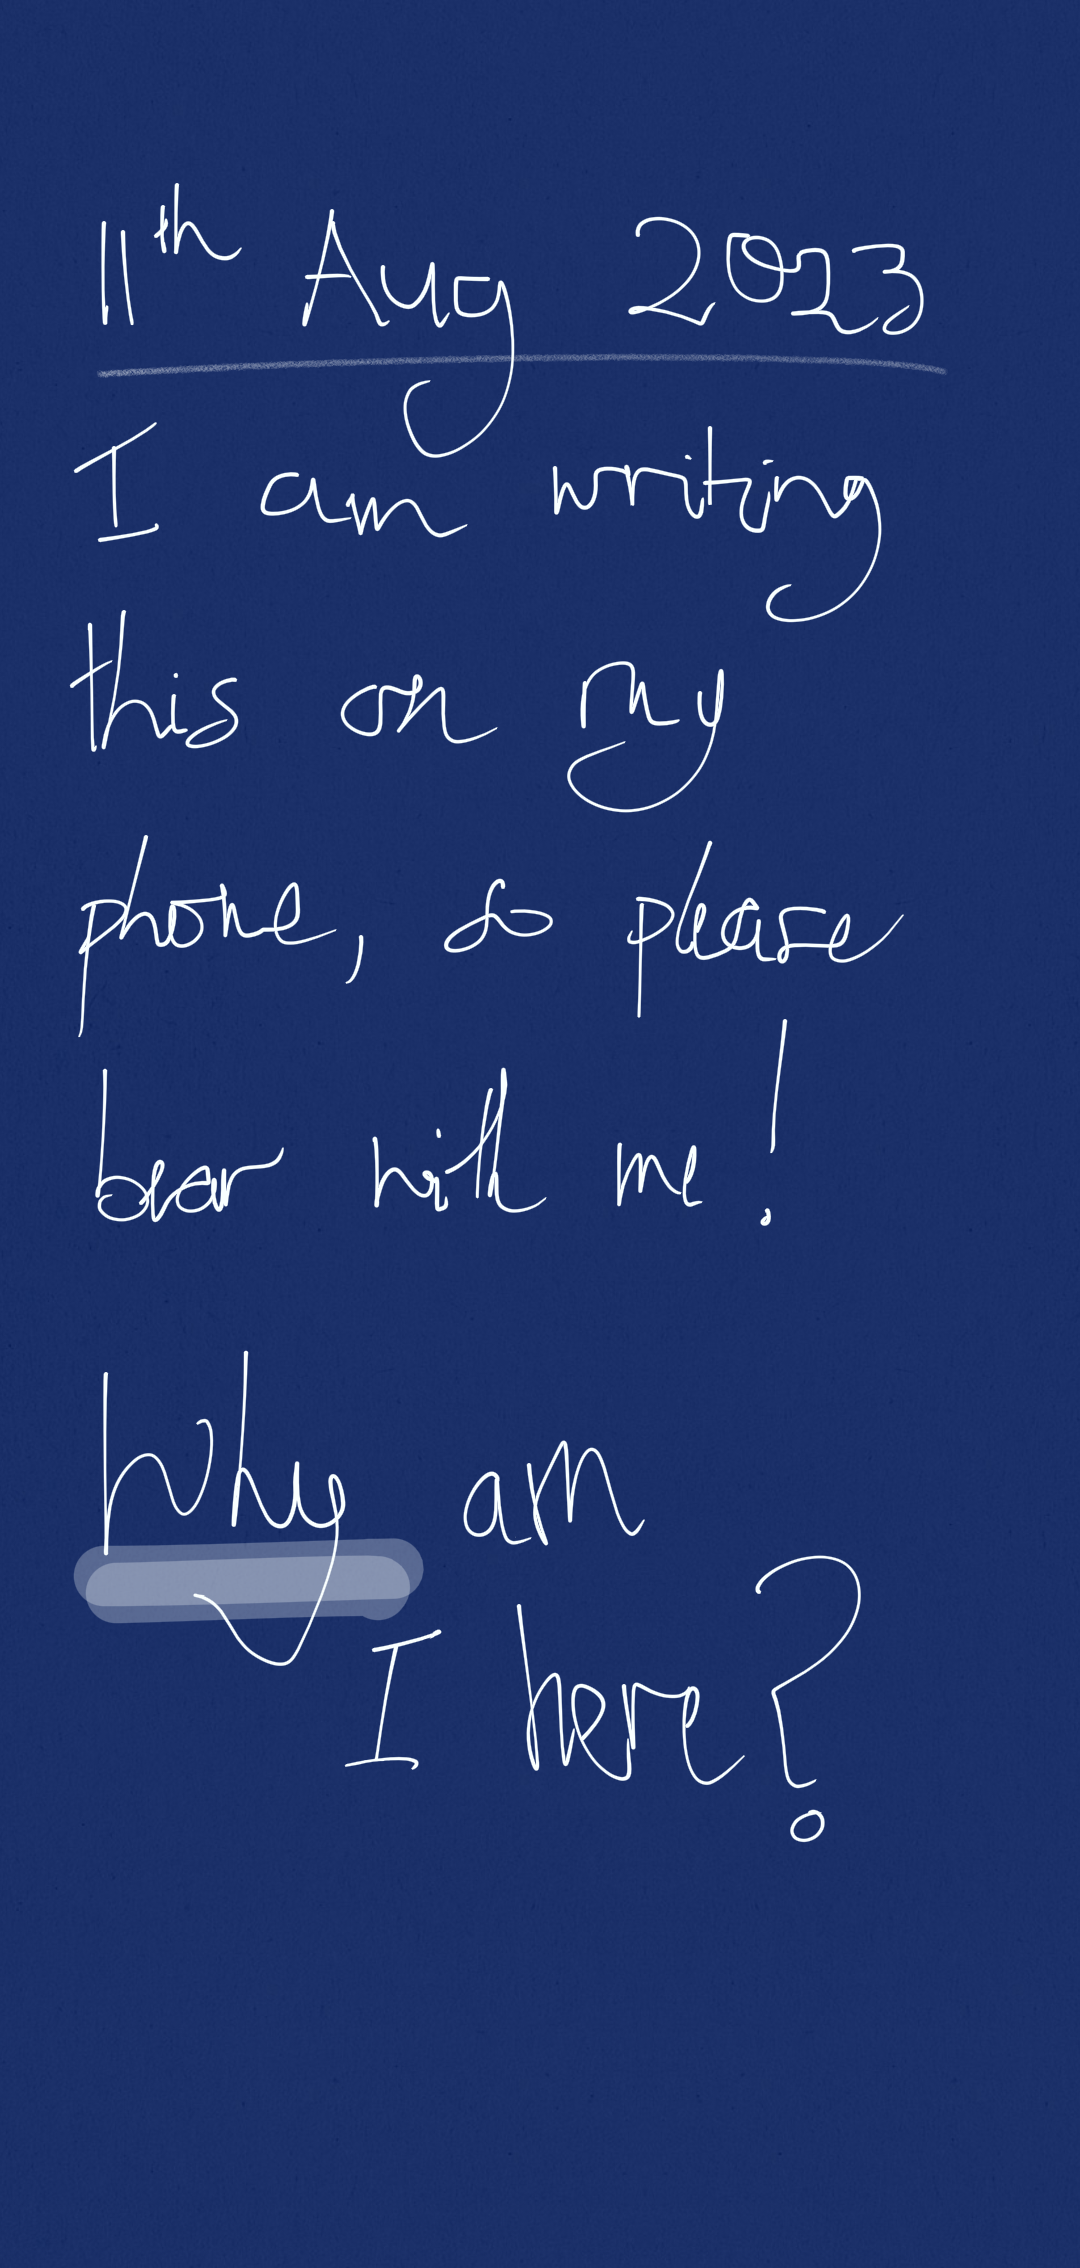 11th Aug 2023
I am writing
this on my
phone, so please
bear with me!
Why am
I here?